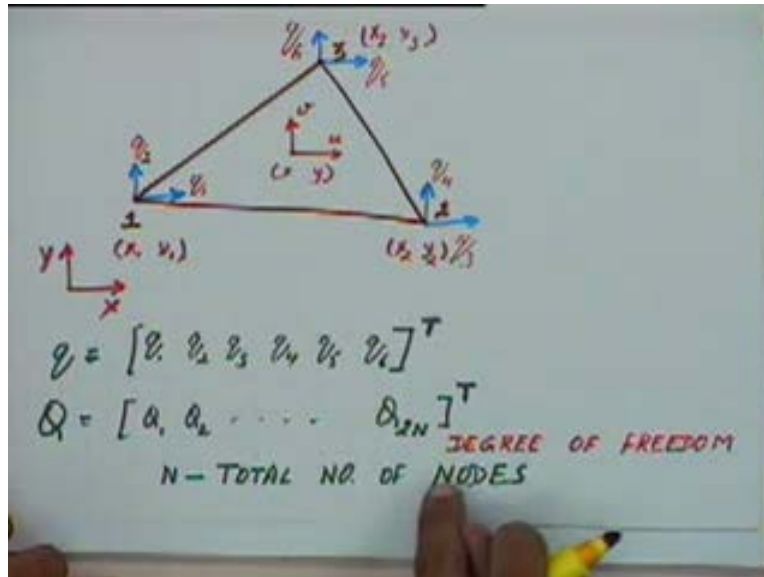 q6 3 (x3 y3)
q5
v
u
(x y)
q2
q1
q4
1
2
(x1 y1)
(x2 y2) q3
Y
X
q = [q1 q2 q3 q4 q5 q6]T
Q = [Q1 Q2 . . . . Q2N]T
DEGREE OF FREEDOM
N - TOTAL NO. OF NODES